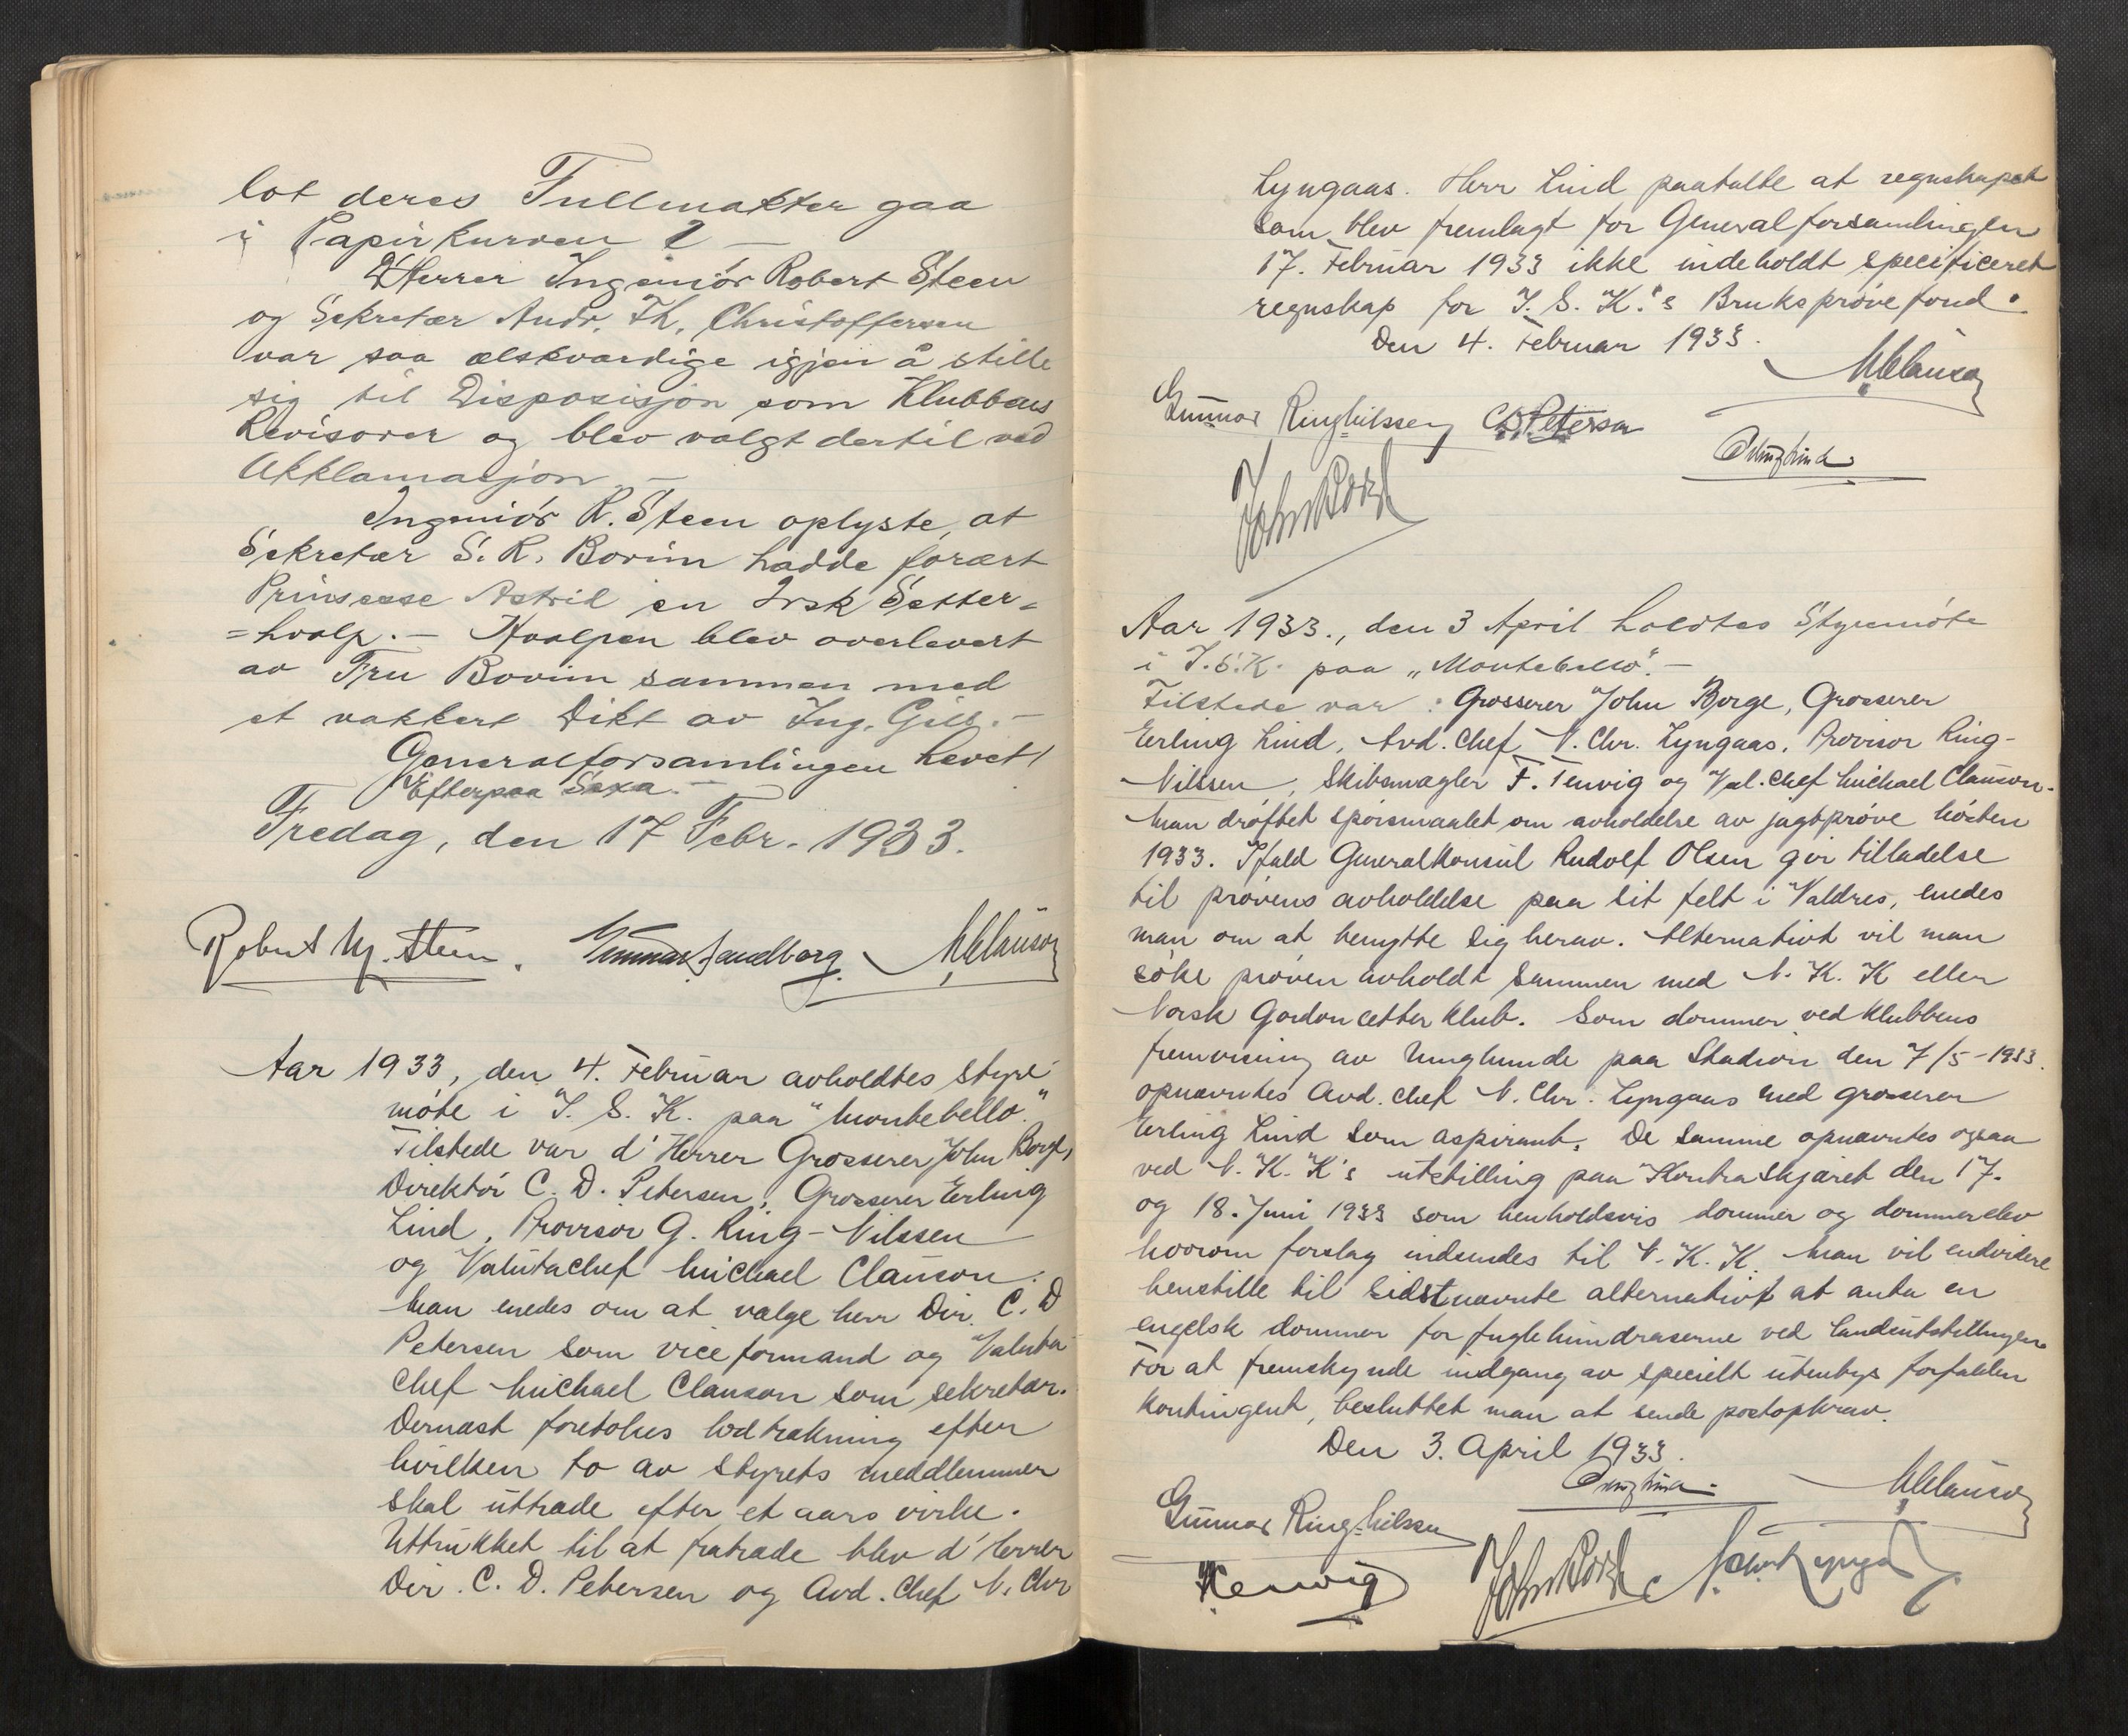 lot deres Fullmakter gaa
i Papirkurven ! —
D'Herrer Ingeniør Robert Steen
og Sekretær Andr. Th. Christoffersen
var saa elskværdige igjen å stille
sig til Disposisjon som Klubbens
Revisorer og blev valgt dertil ved
Akklamasjon. —
Ingeniør R. Steen oplyste, at
Sekretær S. R. Bovim hadde foræert
Prinsesse Astrid en Irsk Setter=
=hvalp. — Hvalpen blev overlevert
av Fru Bovim sammen med
et vakkert Dikt av Ing. Gill. —
Generalforsamlingen hevet!
Efterpaa Sexa. —
Fredag, den 17 Febr. 1933.
Robert M. Steen. Gunnar Sandborg. MClauson
Aar 1933, den 4. Februar avholdtes styre-
møte i "I. S. K. paa "Montebello."
Tilstede var d'Herrer Grosserer John Borge,
Direktør C. D. Petersen, Grosserer Erling
Lind, Provisor G. Ring-Nilssen
og Valutachef Michael Clauson.
Man enedes om at vælge herr Dir. C. D
Petersen som viceformand og Valuta-
chef Michael Clauson som sekretær.
Dernæst foretokes lodtrækning efter
hvilken to av styrets meddlemmer
skal uttræde efter et aars virke.
Uttrukket til at fratræde blev d'Herrer
Dir. C. D. Petersen og Avd. Chef N. Chr
Lyngaas. Herr Lind paatalte at regnskapet
som blev fremlagt for Generalforsamlingen
17. Februar 1933 ikke indeholdt specificeret
regnskap for I. S. K.'s Bruksprøvefond.
Den 4. Februar 1933.
MClauson
Gunnar Ring Nilssen CDPetersen
Erling Lind
John Borge
Aar 1933., den 3 April holdtes Styremøte
i I.S.K. paa „Montebello". —
Tilstede var : Grosserer John Borge, Grosserer
Erling Lind, Avd. Chef N. Chr. Lyngaas, Provisor Ring-
Nilssen, Skibsmægler F. Tenvig og Val. chef Michael Clauson.
Man drøftet spørsmaalet om avholdelse av jagtprøve høsten
1933. Ifald Generalkonsul Rudolf Olsen gir tilladelse
til prøvens avholdelse paa sit felt i Valdres, enedes
man om at benytte sig herav. Alternativt vil man
søke prøven avholdt sammen med N. K. K eller
Norsk Gordonsetter Klub. Som dommer ved klubbens
fremvisning av Unghunde paa Stadion den 7/5-1933.
opnævntes Avd. chef N. Chr. Lyngaas med grosserer
Erling Lind som aspirant. De samme opnævntes ogsaa
ved N. K. K's utstilling paa Kontraskjæret den 17.
og 18. Juni 1933 som henholdsvis dommer og dommerelev
hvorom forslag indsendes til N. K. K. Man vil endvidere
henstille til sidstnævnte alternativt at anta en
engelsk dommer for fuglehundraserne ved landsutstillingen.
For at fremskynde indgang av specielt utenbys forfalden
kontingent, besluttet man at sende postopkrav.
Den 3. April 1933.
Erling Lind. MClauson
Gunnar Ring-Nilssen
FTenvig John Borge N. Chr. Lyngaas